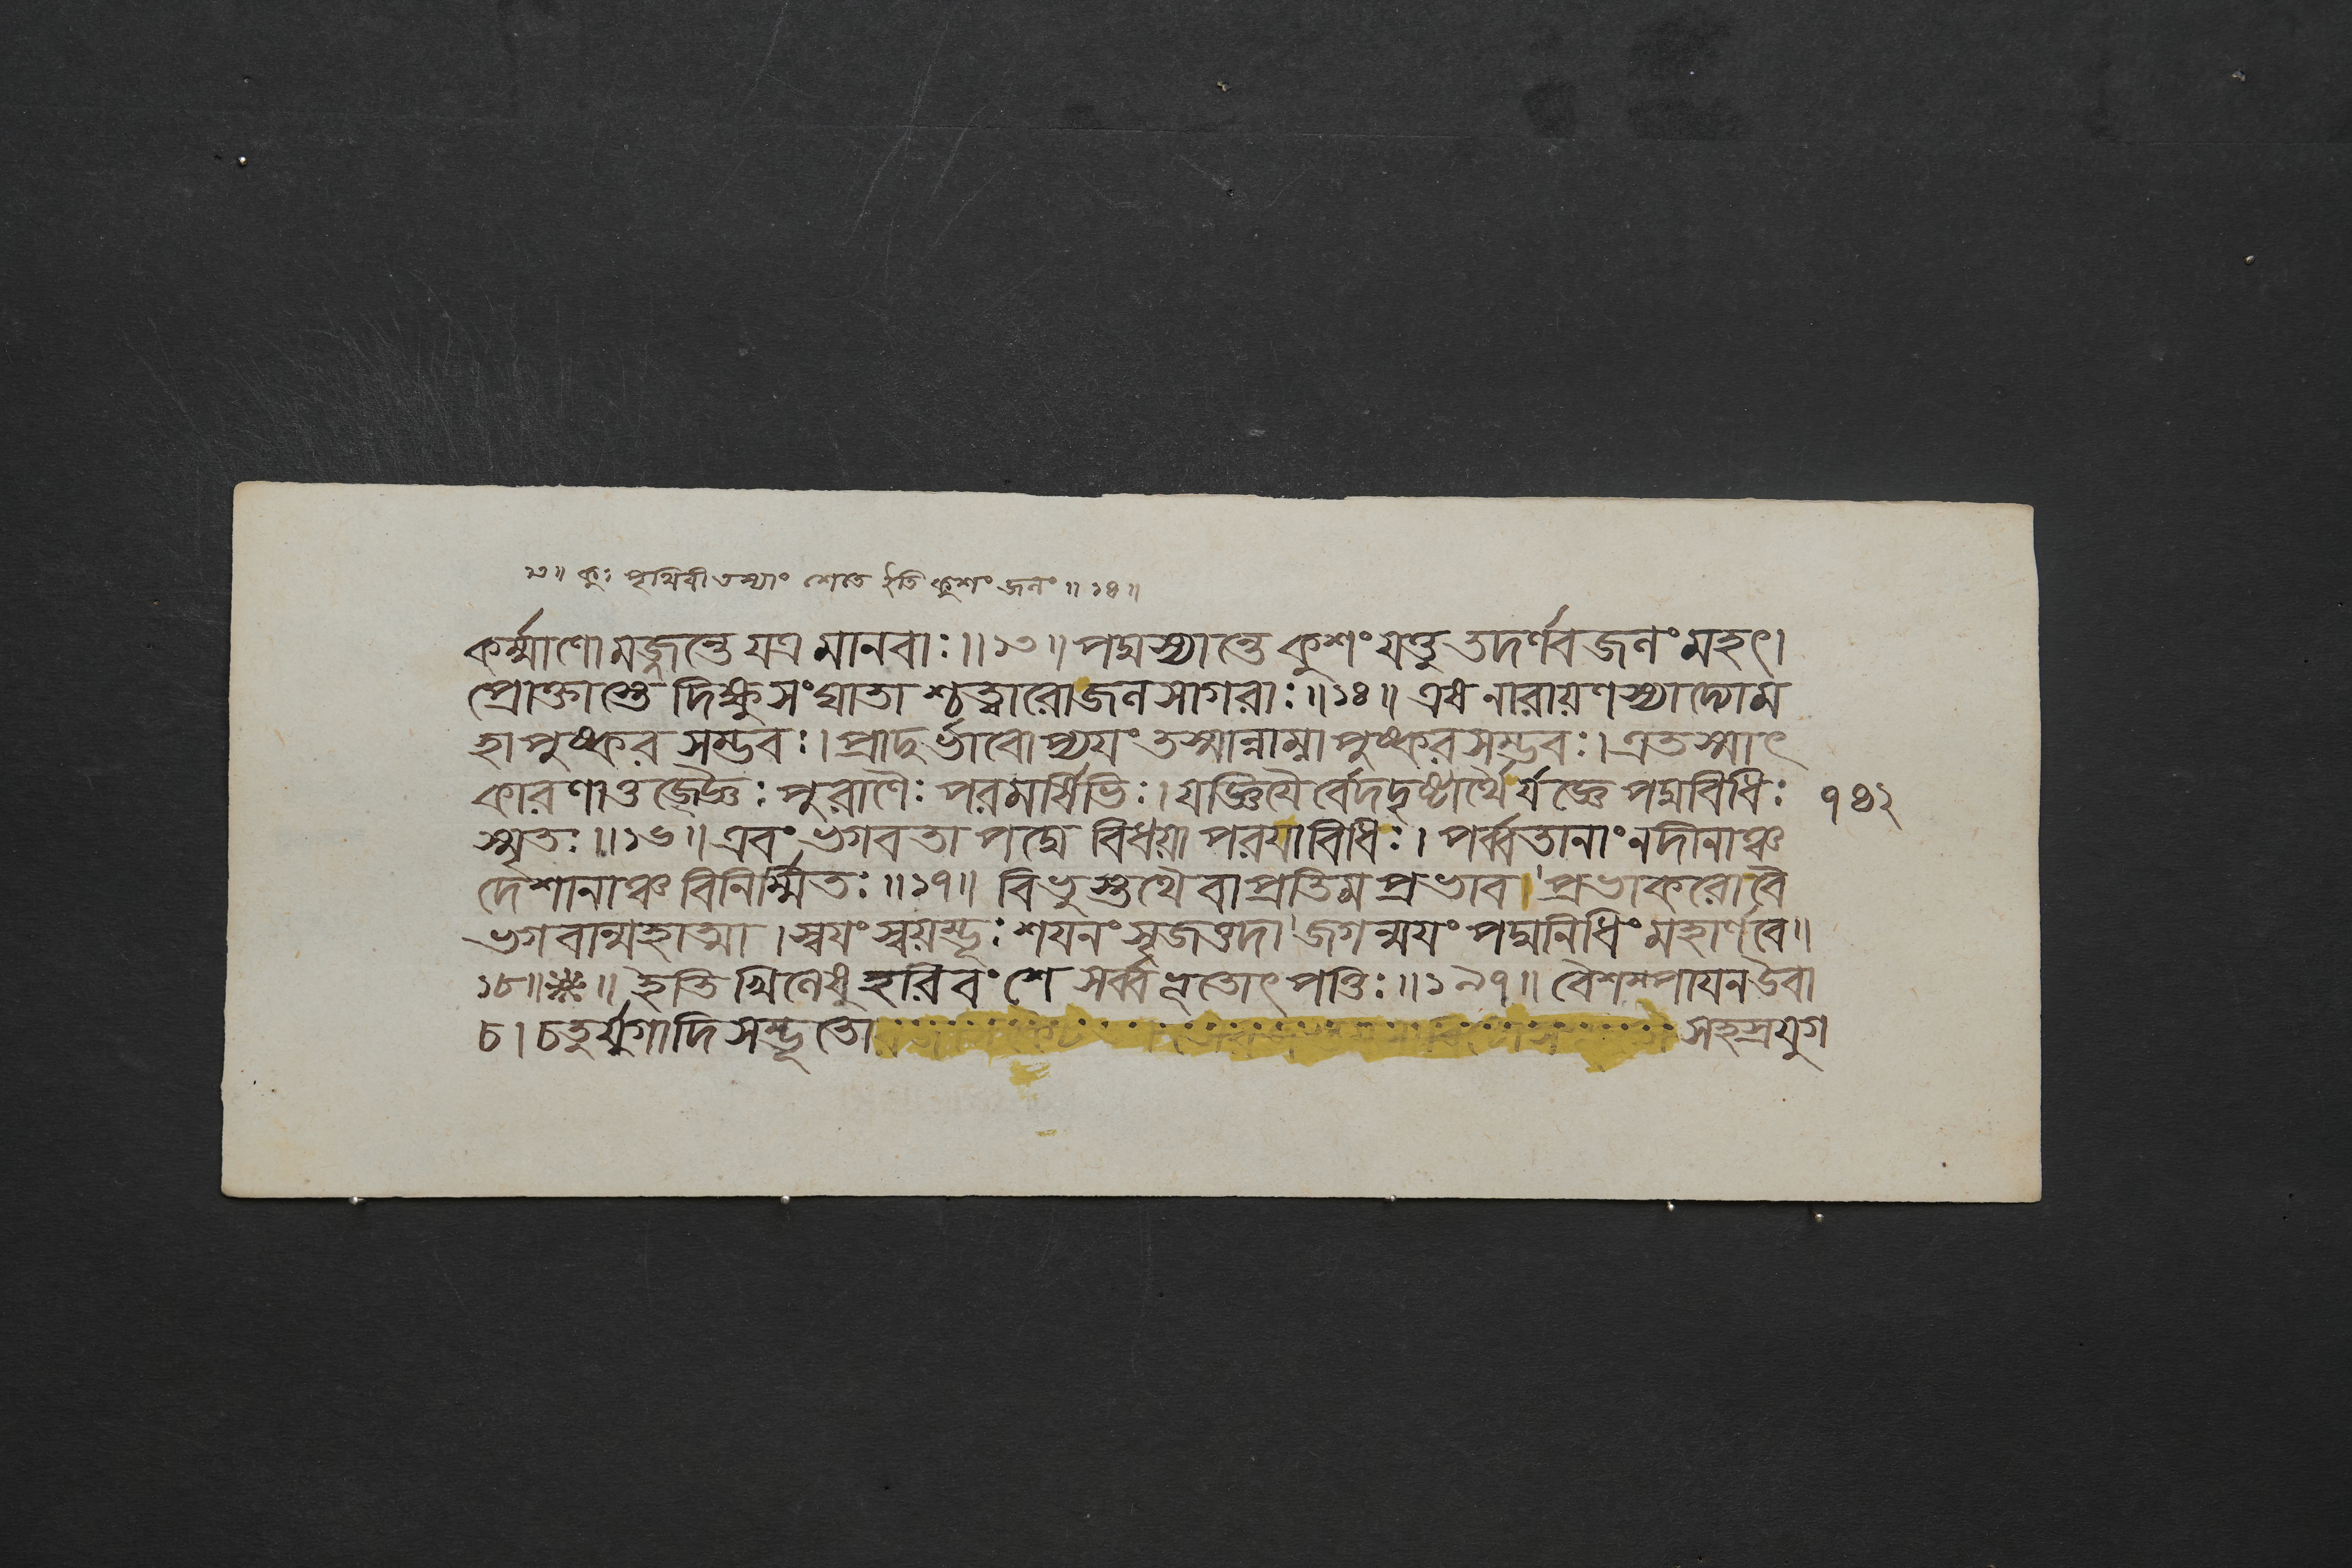 ৩॥ কুঃ পৃথিবী তস্যাং শেতে ইতি কুশং জলং ॥ ১৪ ॥
কর্ম্মাণো মজ্জন্তে যত্র মানবাঃ ॥ ১৩ ॥ পদ্মস্যান্তে কুশং যত্তু তদর্ণবজলং মহৎ।
প্রোক্তাস্তে দিক্ষু সংঘাতা শ্চত্বারো জলসাগরাঃ ॥ ১৪ ॥ এষ নারায়ণস্যাদ্যো ম
হাপুষ্করসম্ভবঃ। প্রাদুর্ভাবোপ্যয়ং তস্মান্নাম্না পুষ্করসম্ভবঃ। এতস্মাৎ
কারণাত্তজ্জ্ঞৈঃ পুরাণৈঃ পরমর্ষিভিঃ। যজ্ঞিয়ৈর্বেদদৃষ্টার্থৈর্যজ্ঞে পদ্মবিধিঃ
৭৪২
স্মৃতঃ ॥ ১৬ ॥ এবং ভগবতা পদ্মে বিধয়া পরয়া বিধিঃ। পর্ব্বতানাং নদীনাঞ্চ
দেশানাঞ্চ বিনির্ম্মিতঃ ॥ ১৭ ॥ বিভুস্তথৈবাপ্রতিমপ্রভাব। প্রভাকরো বৈ
ভগবান্মহাত্মা। স্বয়ং স্বয়ম্ভূঃ শয়নং সৃজত্তদা জগন্ময়ং পদ্মনিধিং মহার্ণবে ॥
১৮ ॥ ※ ॥ ইতি খিলেষু হরিবংশে সর্ব্বভূতোৎপত্তিঃ ॥ ১৯৭ ॥ বৈশম্পায়ন উবা
চ। চতুর্যুগাদিসম্ভূতো সহস্রযুগ